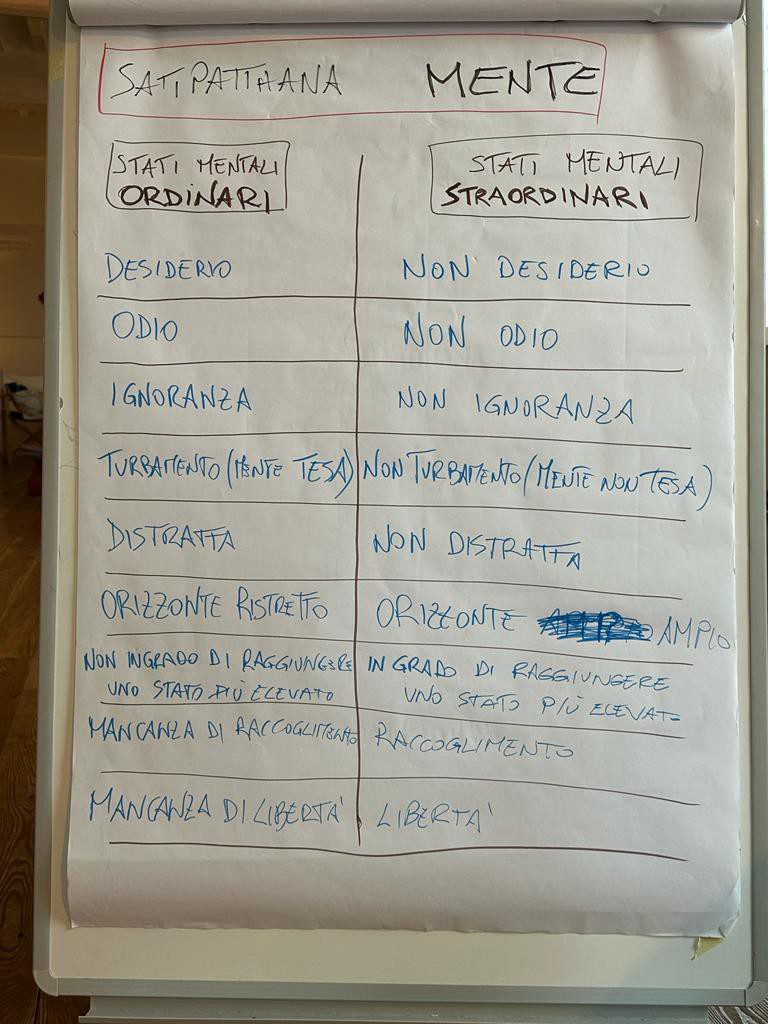 SATIPATTHANA MENTE
STATI MENTALI
ORDINARI
STATI MENTALI
STRAORDINARI
DESIDERIO NON DESIDERIO
ODIO NON ODIO
IGNORANZA NON IGNORANZA
TURBAMENTO (MENTE TESA) NON TURBAMENTO (MENTE NON TESA)
DISTRATTA NON DISTRATTA
ORIZZONTE RISTRETTO ORIZZONTE AMPIO
NON IN GRADO DI RAGGIUNGERE
UNO STATO PIÙ ELEVATO
IN GRADO DI RAGGIUNGERE
UNO STATO PIÙ ELEVATO
MANCANZA DI RACCOGLIMENTO RACCOGLIMENTO
MANCANZA DI LIBERTÀ LIBERTÀ